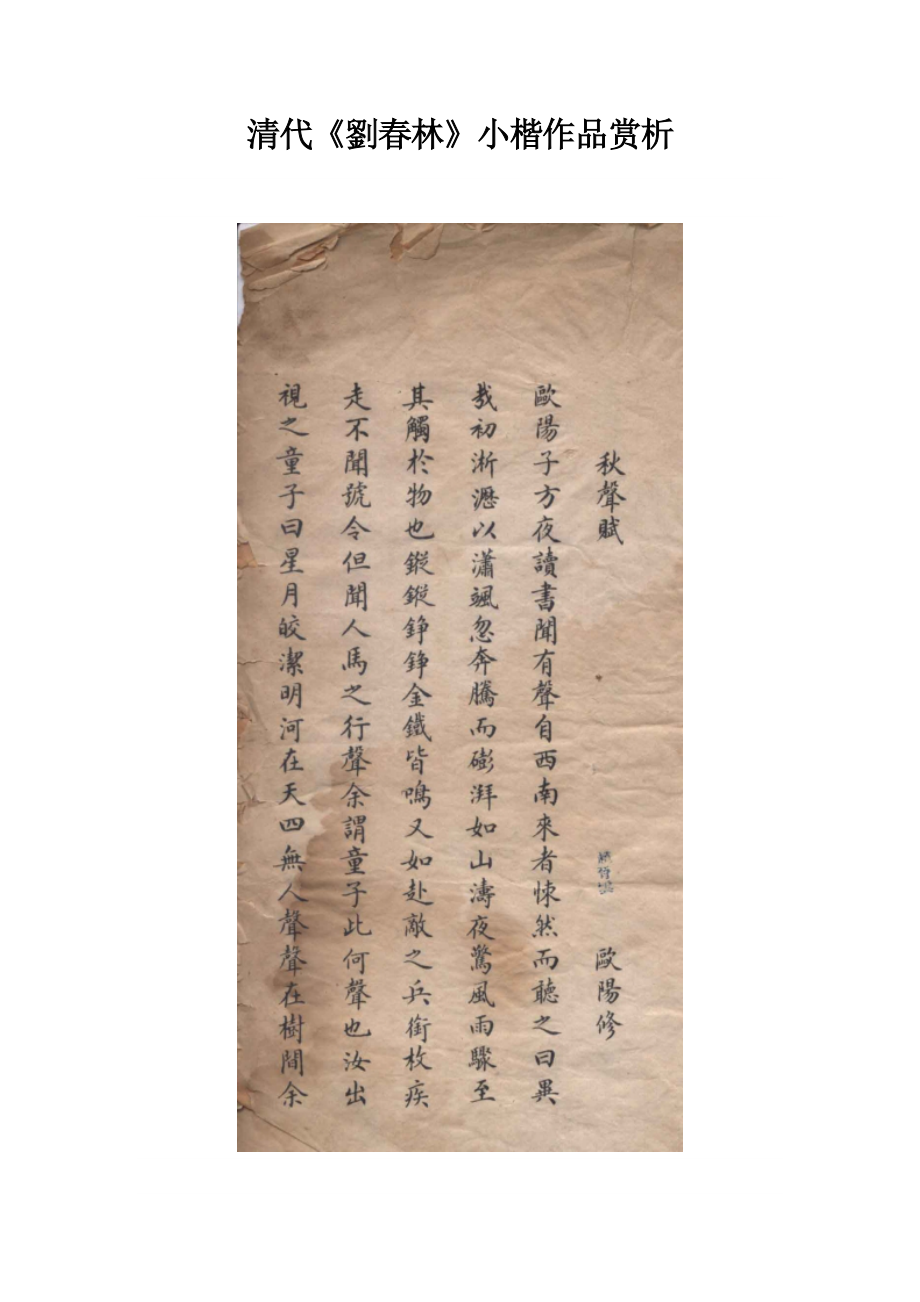 清代《劉春林》小楷作品赏析
秋聲賦 歐陽修
歐陽子方夜讀書聞有聲自西南來者悚然而聽之曰異
哉初淅瀝以瀟颯忽奔騰而砰湃如山濤夜驚風雨驟至
其觸於物也鏦鏦錚錚金鐵皆鳴又如赴敵之兵銜枚疾
走不聞號令但聞人馬之行聲余謂童子此何聲也汝出
視之童子曰星月皎潔明河在天四無人聲聲在樹間余